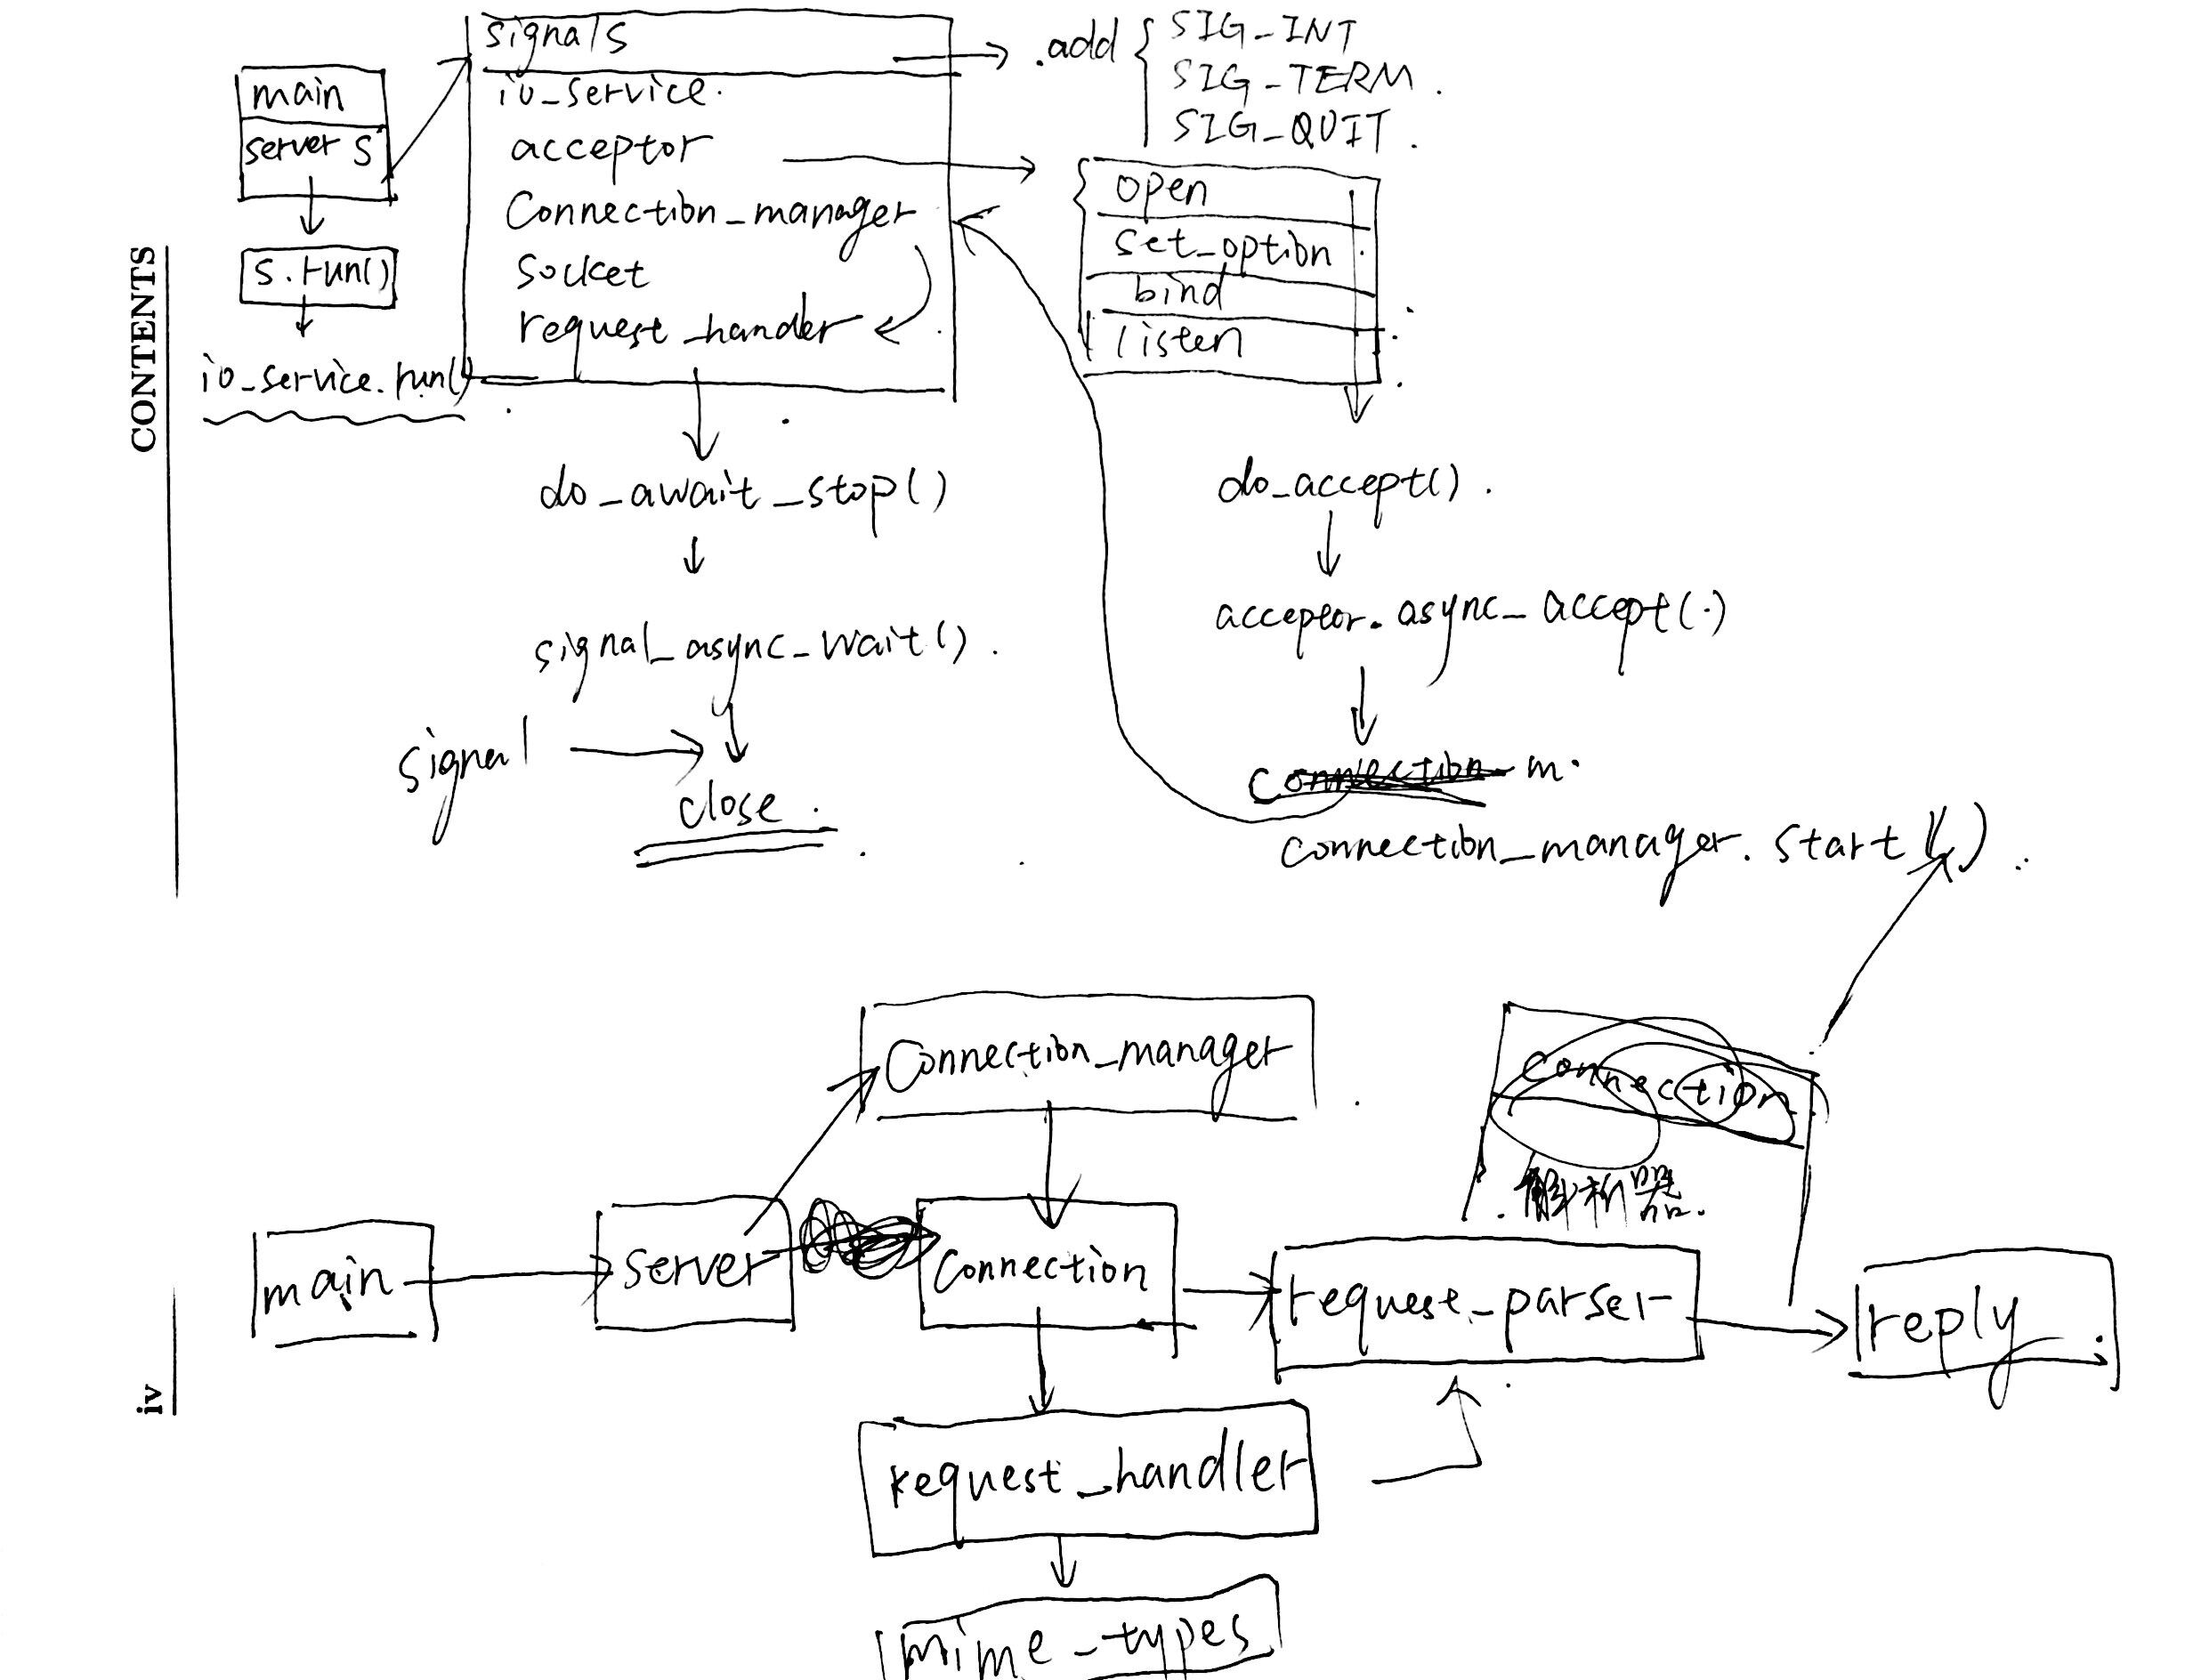 CONTENTS
iv
main
server s
s.run()
io_service.run()
signals
io_service.
acceptor
Connection_manager
Socket
request_handler
.add { SIG_INT
SIG_TERM.
SIG_QUIT.
open
set_option
bind
listen
do_await_stop()
signal_async_wait().
signal
close.
do_accept().
acceptor.async_accept(.)
connection_m.
connection_manager.start().
Connection_manager
connection
解析器.
main
server
Connection
request_parser
reply
request_handler
mime_types